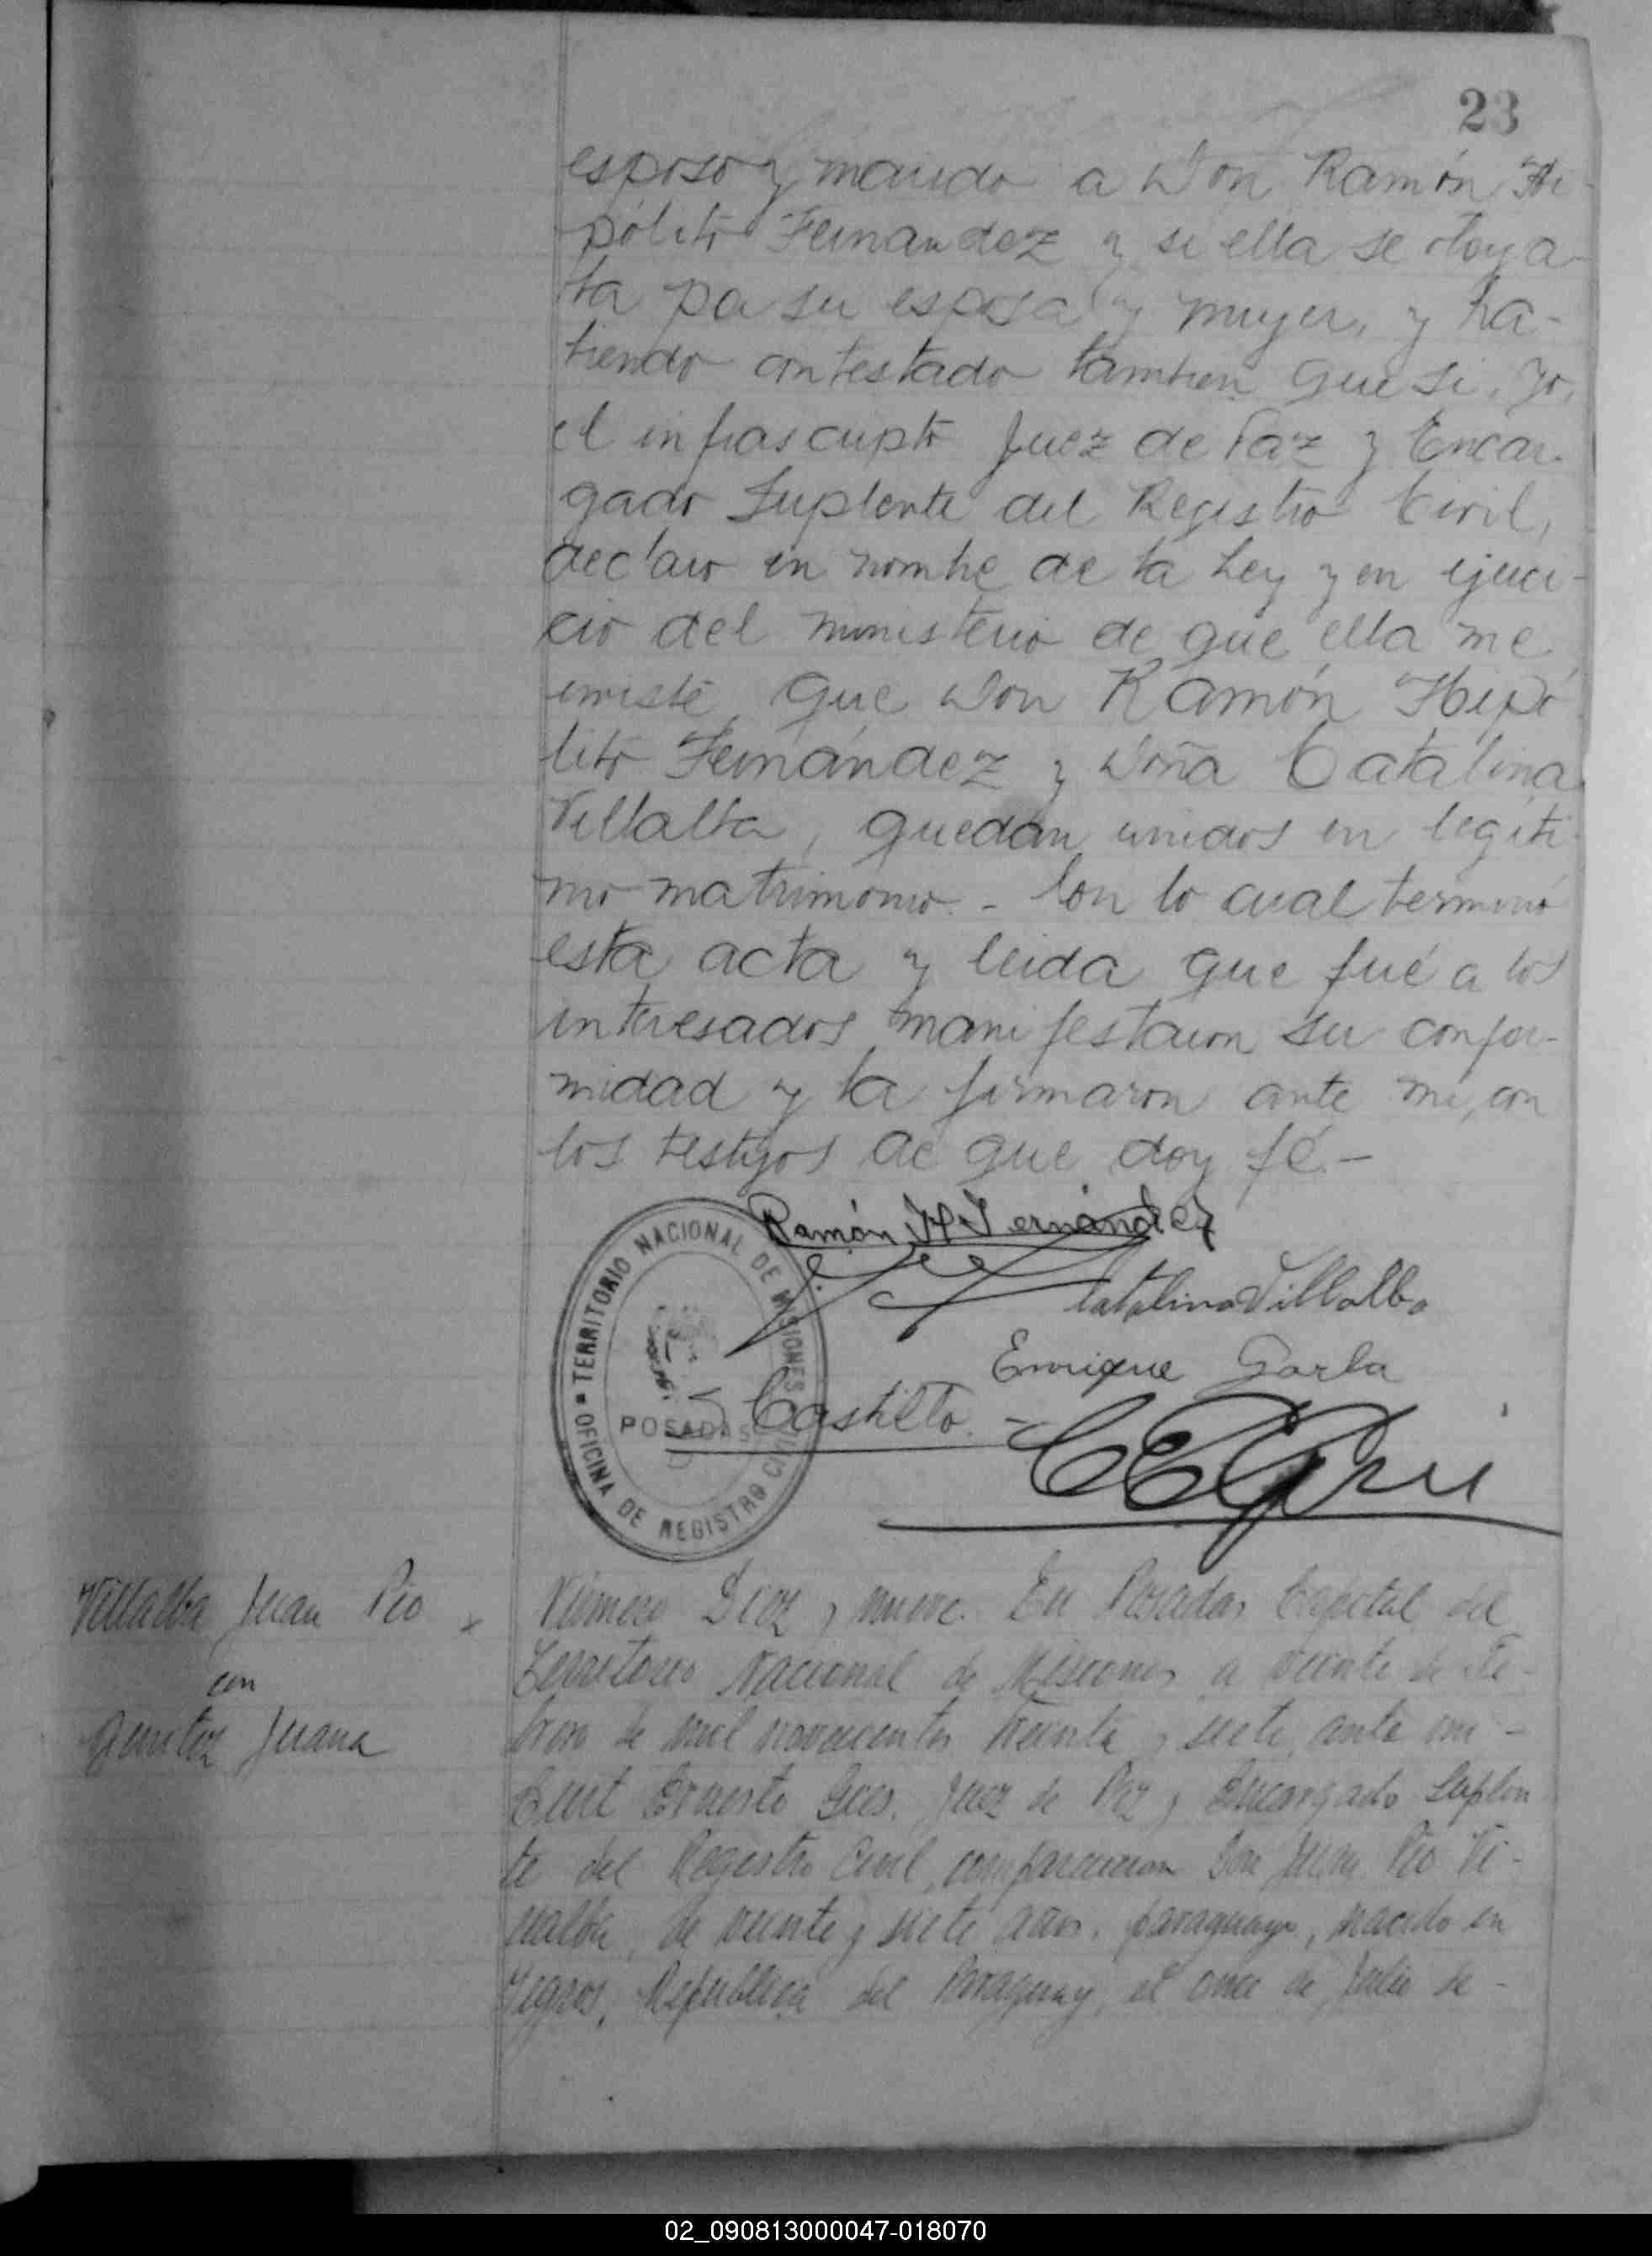 23
esposo y marido a Don Ramón Hi-
pólito Fernandez y si ella se otorga-
ba por su esposa y mujer, y ha-
biendo contestado tambien que si, yo,
el infrascripto Juez de Paz y Encar-
gado Suplente del Registro Civil,
declaro en nombre de la Ley y en ejerci-
cio del ministerio de que ella me
inviste que Don Ramón Hipó
lito Fernández y Doña Catalina
Villalba, quedan unidos en legíti
mo matrimonio. - Con lo cual terminó
esta acta y leida que fué a los
interesados manifestaron su confor-
midad y la firmaron ante mi, con
los testigos de que doy fé. -
Ramón H. Fernández
Catalina Villalba
Enrique
Castillo
TERRITORIO NACIONAL DE MISIONES
POSADAS
OFICINA DE REGISTRO CIVIL
Villalba Juan Pio
con
Benitez Juana
Número Diez y nueve. En Posadas Capital del
Territorio Nacional de Misiones a veinte de Fe-
brero de mil novecientos treinta y siete, ante mi -
Ernesto Juez de Paz y Encargado Suplen
te del Registro Civil, comparecieron Don Juan Pio Vi-
llalba, de veinte y siete años, paraguayo, nacido en
Yegros, Republica del Paraguay, el once de Julio de -
02_090813000047-018070